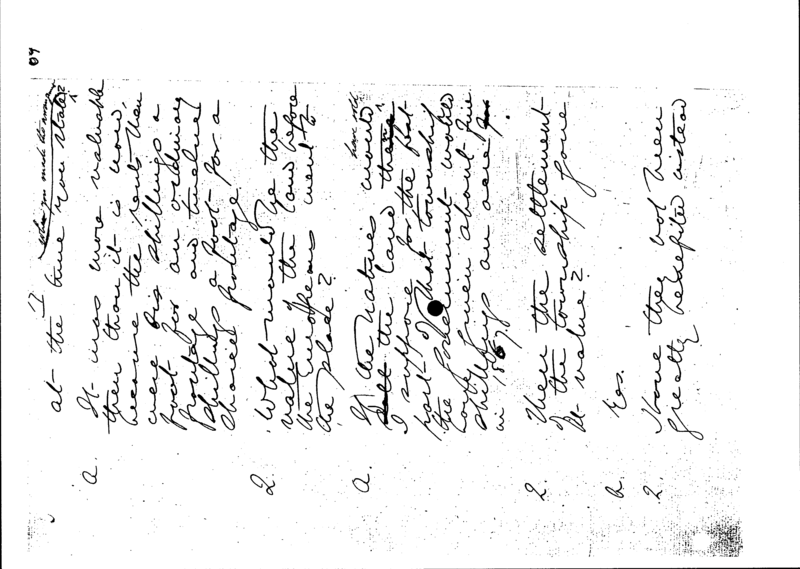 69
when you made the
at the time you state?
a. It was more valuable
then than it is now,
because the rents then
were six shillings a
foot for an ordinary
frontage and twelve
shillings a foot for a
choice frontage
Q. What would be the
value of the land before
the Europeans went to
the place?
a. If the natives would
have sold
the land then
I suppose for the flat
part of that township
the Government would
have given about five
shillings an acre
in 1878.
Q. Then the settlement
of the township gave
it value?
a. Yes.
Q. Have they not been
greatly benefited instead